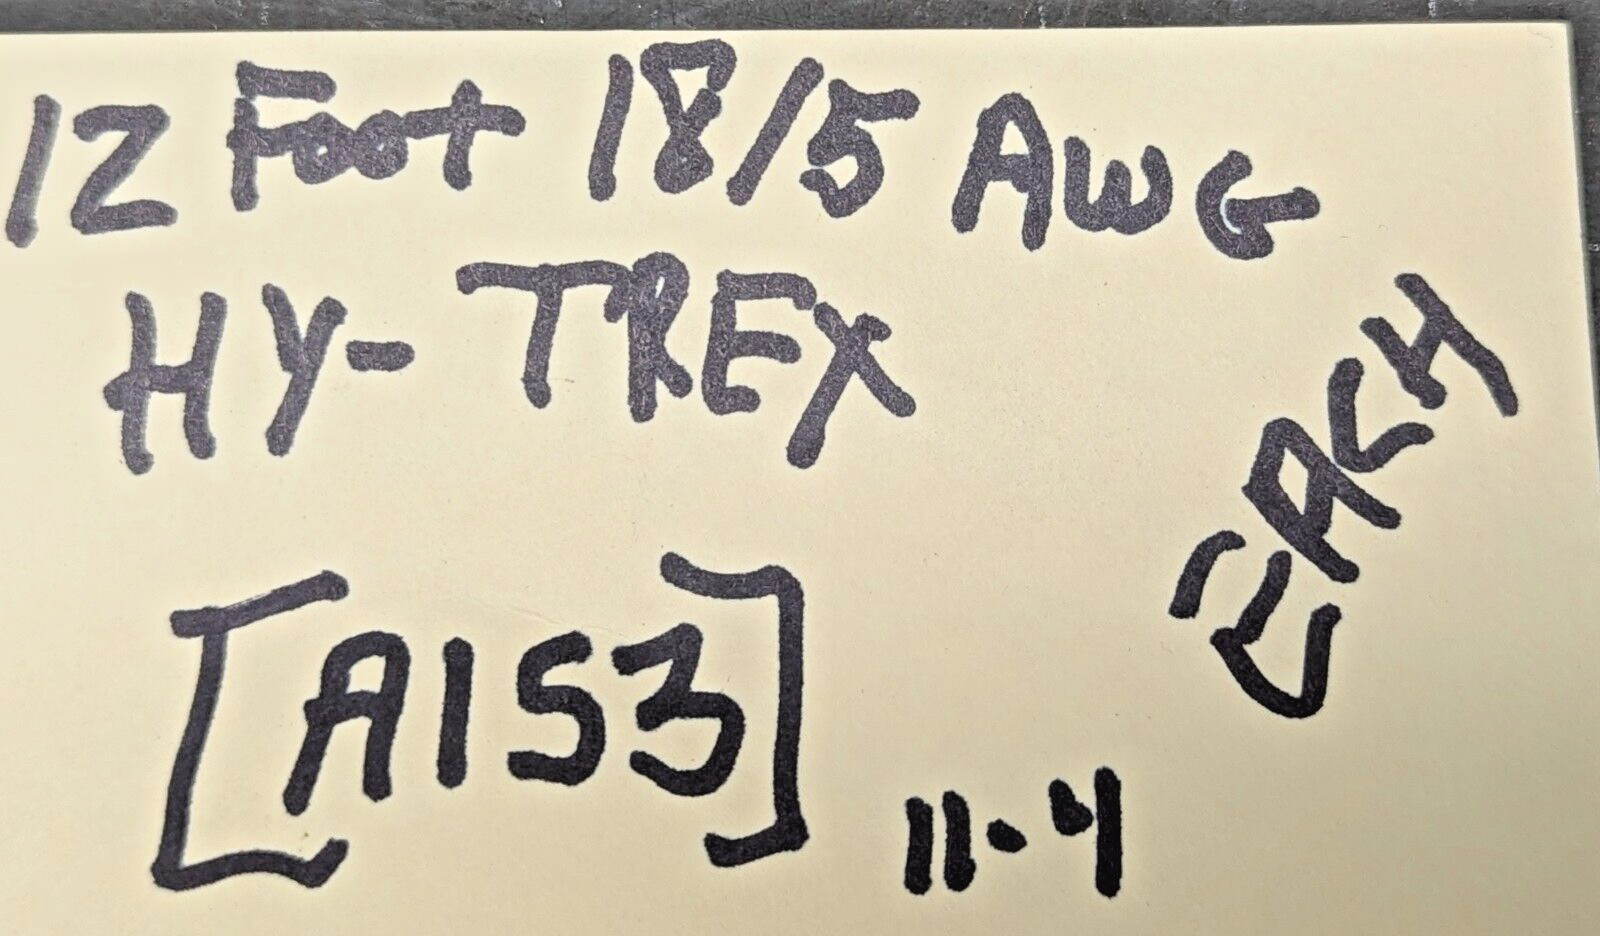 12 Foot 18/5 AWG
HY-TREX
EACH
[A153]
11.4